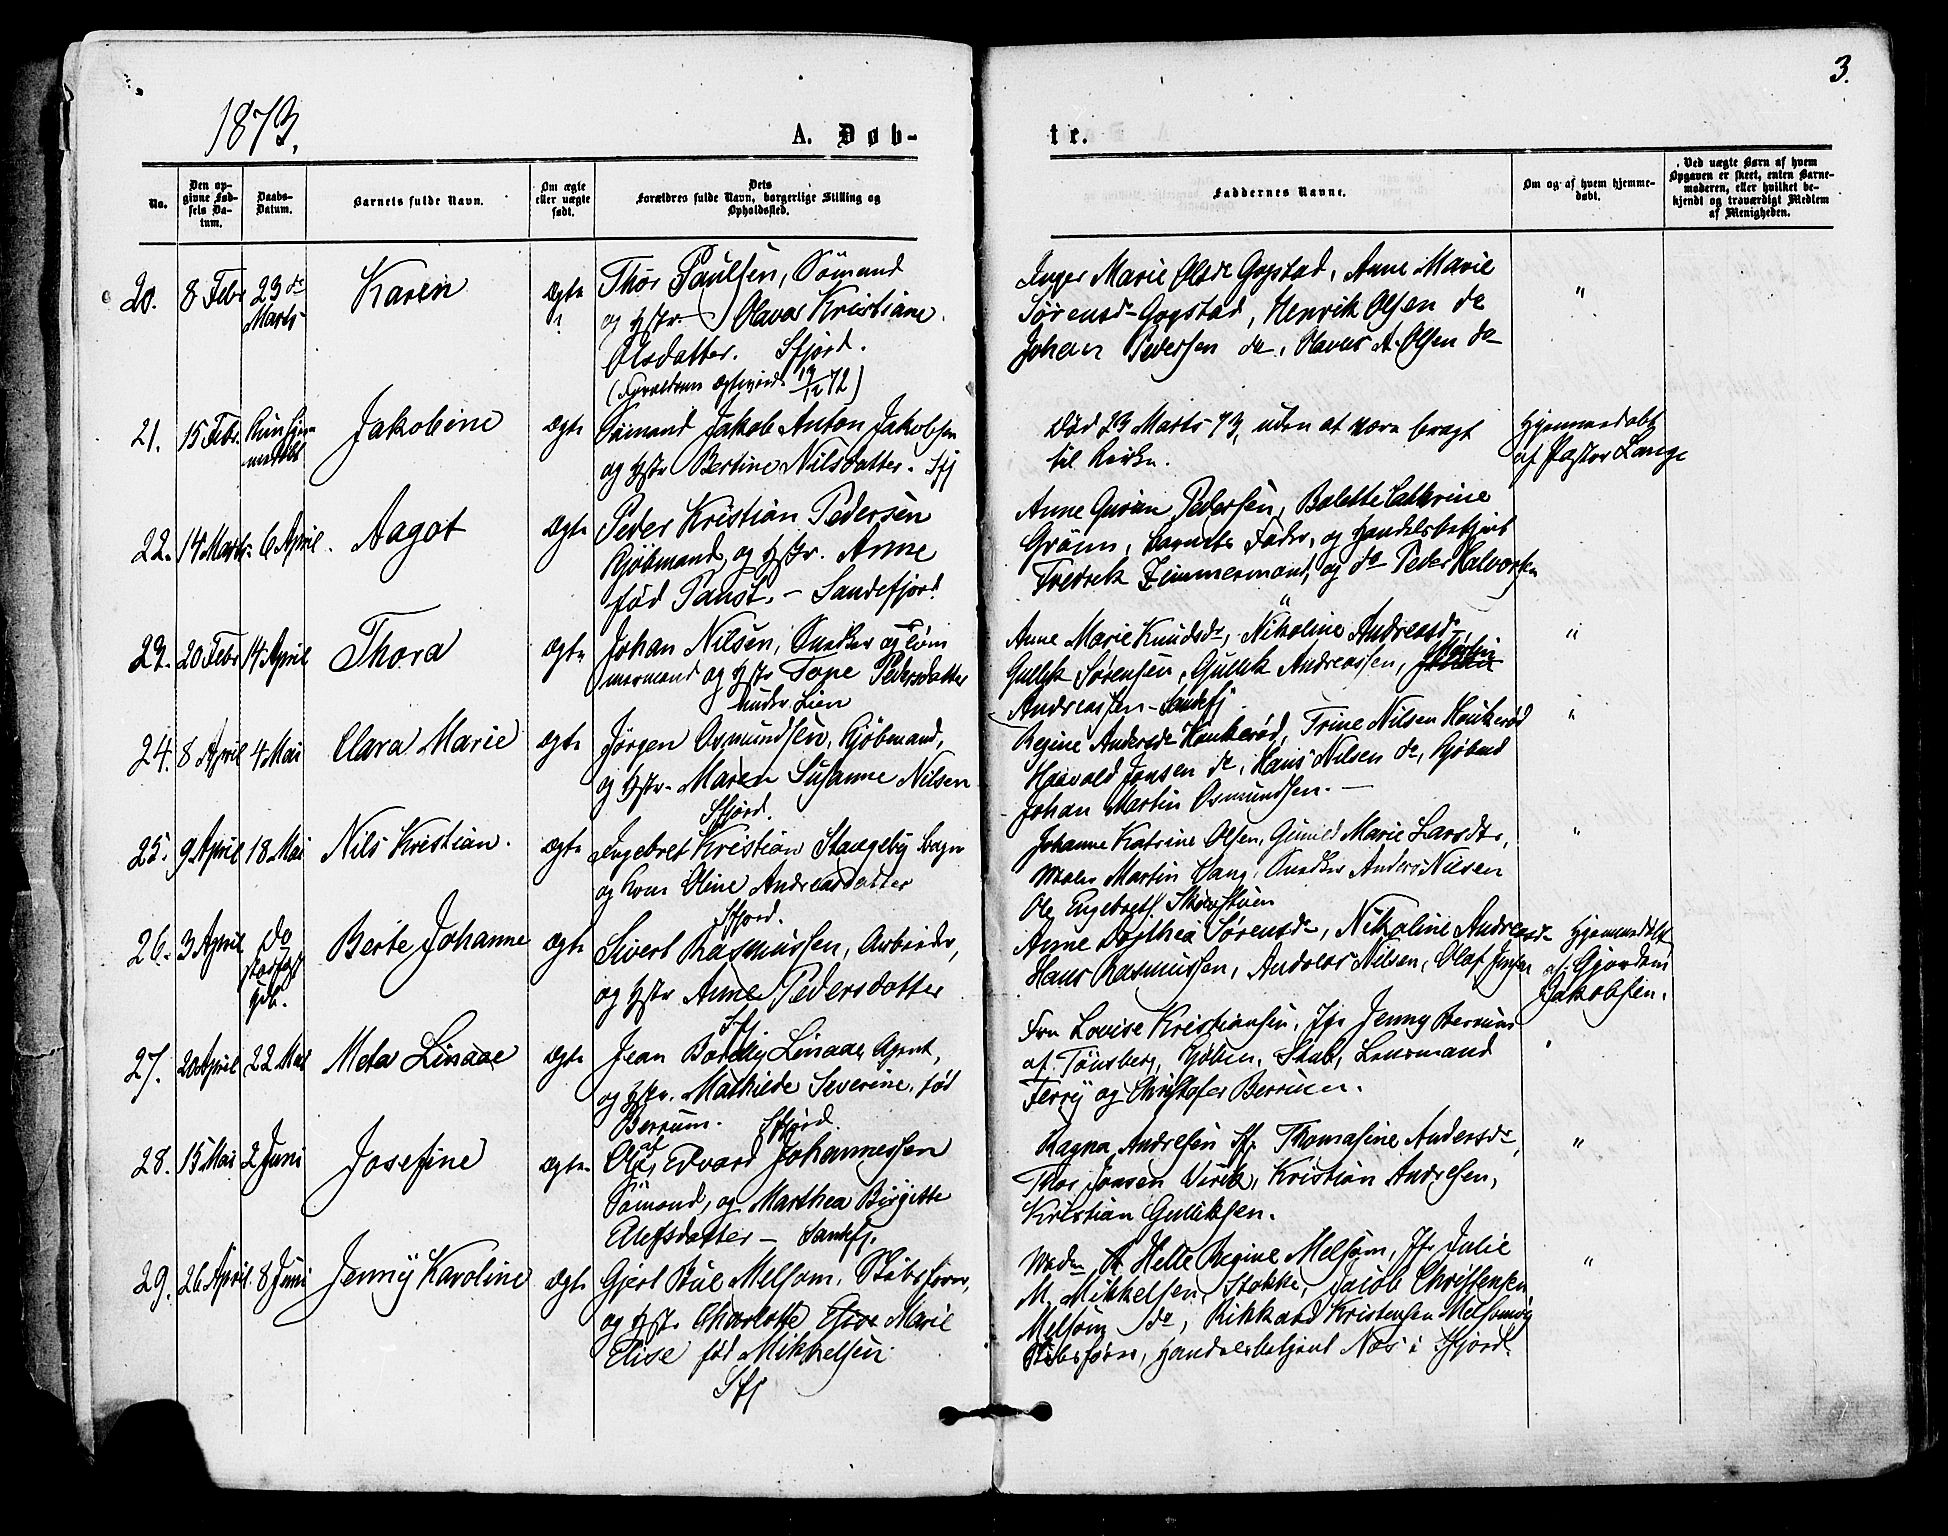 3.
1873.
A. Døb-
te.
No.
Den op-
givne Fød-
sels Da-
tum.
Daabs-
Datum.
Barnets fulde Navn.
Om ægte
eller uægte
født.
Dets
Forældres fulde Navn, borgerlige Stilling og
Opholdssted.
Faddernes Navne.
Om og af hvem hjemme-
døbt.
Ved uægte Børn af hvem
Opgaven er skeet, enten Barne-
moderen, eller hvilket be-
kjendt og troværdigt Medlem
af Menigheden.
20. 8 Febr 23de
Marts
Karen
Ægte
Thor Paulsen, Sømand
og Hstr. Olava Kristiane
Olsdatter. Sfjord.
(Forældrene ægteviede 19/12 72)
Inger Marie Olsdr Gogstad, Anne Marie
Sørensdr Gogstad, Henrik Olsen do
Johan Pedersen do, Olaves A. Olsen do
"
21. 15 Febr. Kun hjem
medøbt
Jakobine
Ægte
Sømand Jakob Anton Jakobsen
og Hstr Bertine Nilsdatter. Sfj
Død 23 Marts 73, uden at være bragt
til Kirke.
Hjemmedøbt
af Pastor Lange
22. 14 Marts 6 April.
Aagot
Ægte
Peder Kristian Pedersen
Kjøbmand, og Hstr. Anne
født Paust. – Sandefjord.
Anne Gurine Pedersen, Bolette Cathrine
Grønn, Barnets Fader, og Handelsbetjent
Fredrek Zimmermand, og do Peder Halvorsen
"
23. 20 Febr 14 April
Thora
Ægte
Johan Nilsen, Snedker og Tøm
mermand og Hstr Tope Pedersdatter
under Lien
Anne Marie Knudsdr, Nikoline Andreasdr,
Gullik Sørensen, Gullik Andreassen, Martin
Andreassen – Sandefj
"
24. 8 April 4 Mai
Clara Marie
Ægte
Jørgen Osmundsen, Kjøbmand,
og Hstr. Maren Susanne Nilsen
Sfjord.
Regine Andersdr Haukerød, Trine Nilsen Haukerød
Haavald Jonsen do, Hans Nilsen do, Kjøbmd
Johan Martin Osmundsen. –
"
25. 9 April 18 Mai
Nils Kristian.
Ægte
Ingebret Kristian Stangeby Bager
og Kone Oline Andreasdatter
Sfjord.
Johanne Katrine Olsen, Gunild Marie Larsdtr,
Maler Martin Vang, Snedker Anders Nilsen
Ole Engebrets.
"
26. 3 April Do
Berte Johanne
Ægte
Sivert Rasmussen, Arbeider,
og Hstr Anne Pedersdatter
Sfj
Anne Dorthea Sørensdr, Nikoline Andreasdr
Hans Rasmussen, Andreas Nilsen, Olaf Jensen
Hjemmedøbt
af Gjordem
Jakobsen.
27. 20 April 22 Mai
Meta Linaae
Ægte
Jean Linaae, Agent,
og Hstr. Mathilde Severine, født
Berrum. Sfjord.
Fru Lovise Kristiansen, Jfr Jenny Berrum
af Tønsberg, Kjøbm. Stub, Lensmand
Ferry og Christofer Berrum.
"
28. 15 Mai 2 Juni
Josefine
Ægte
Olaf Edvard Johannessen
Sømand, og Marthea Birgitte
Ellefsdatter – Sandefj.
Ragna Andresen Sfj. Thomasine Andersdr,
Thor Jonsen Virik, Kristian Andresen,
Kristian Gulliksen.
"
29. 26 April. 8 Juni
Jenny Karoline
Ægte
Gjert Bue Melsom, Skibsfører,
og Hstr. Charlotte Marie
Elise født Mikkelsen
Sfj
Madm. A Helle Regine Melsom, Jfr Julie
M. Mikkelsen, Stokke, Jacob Christensen
Melsom do, Rikkard Kristensen Melsomvig
Skibsfører, Handelsbetjent Næs i Sfjord.
"